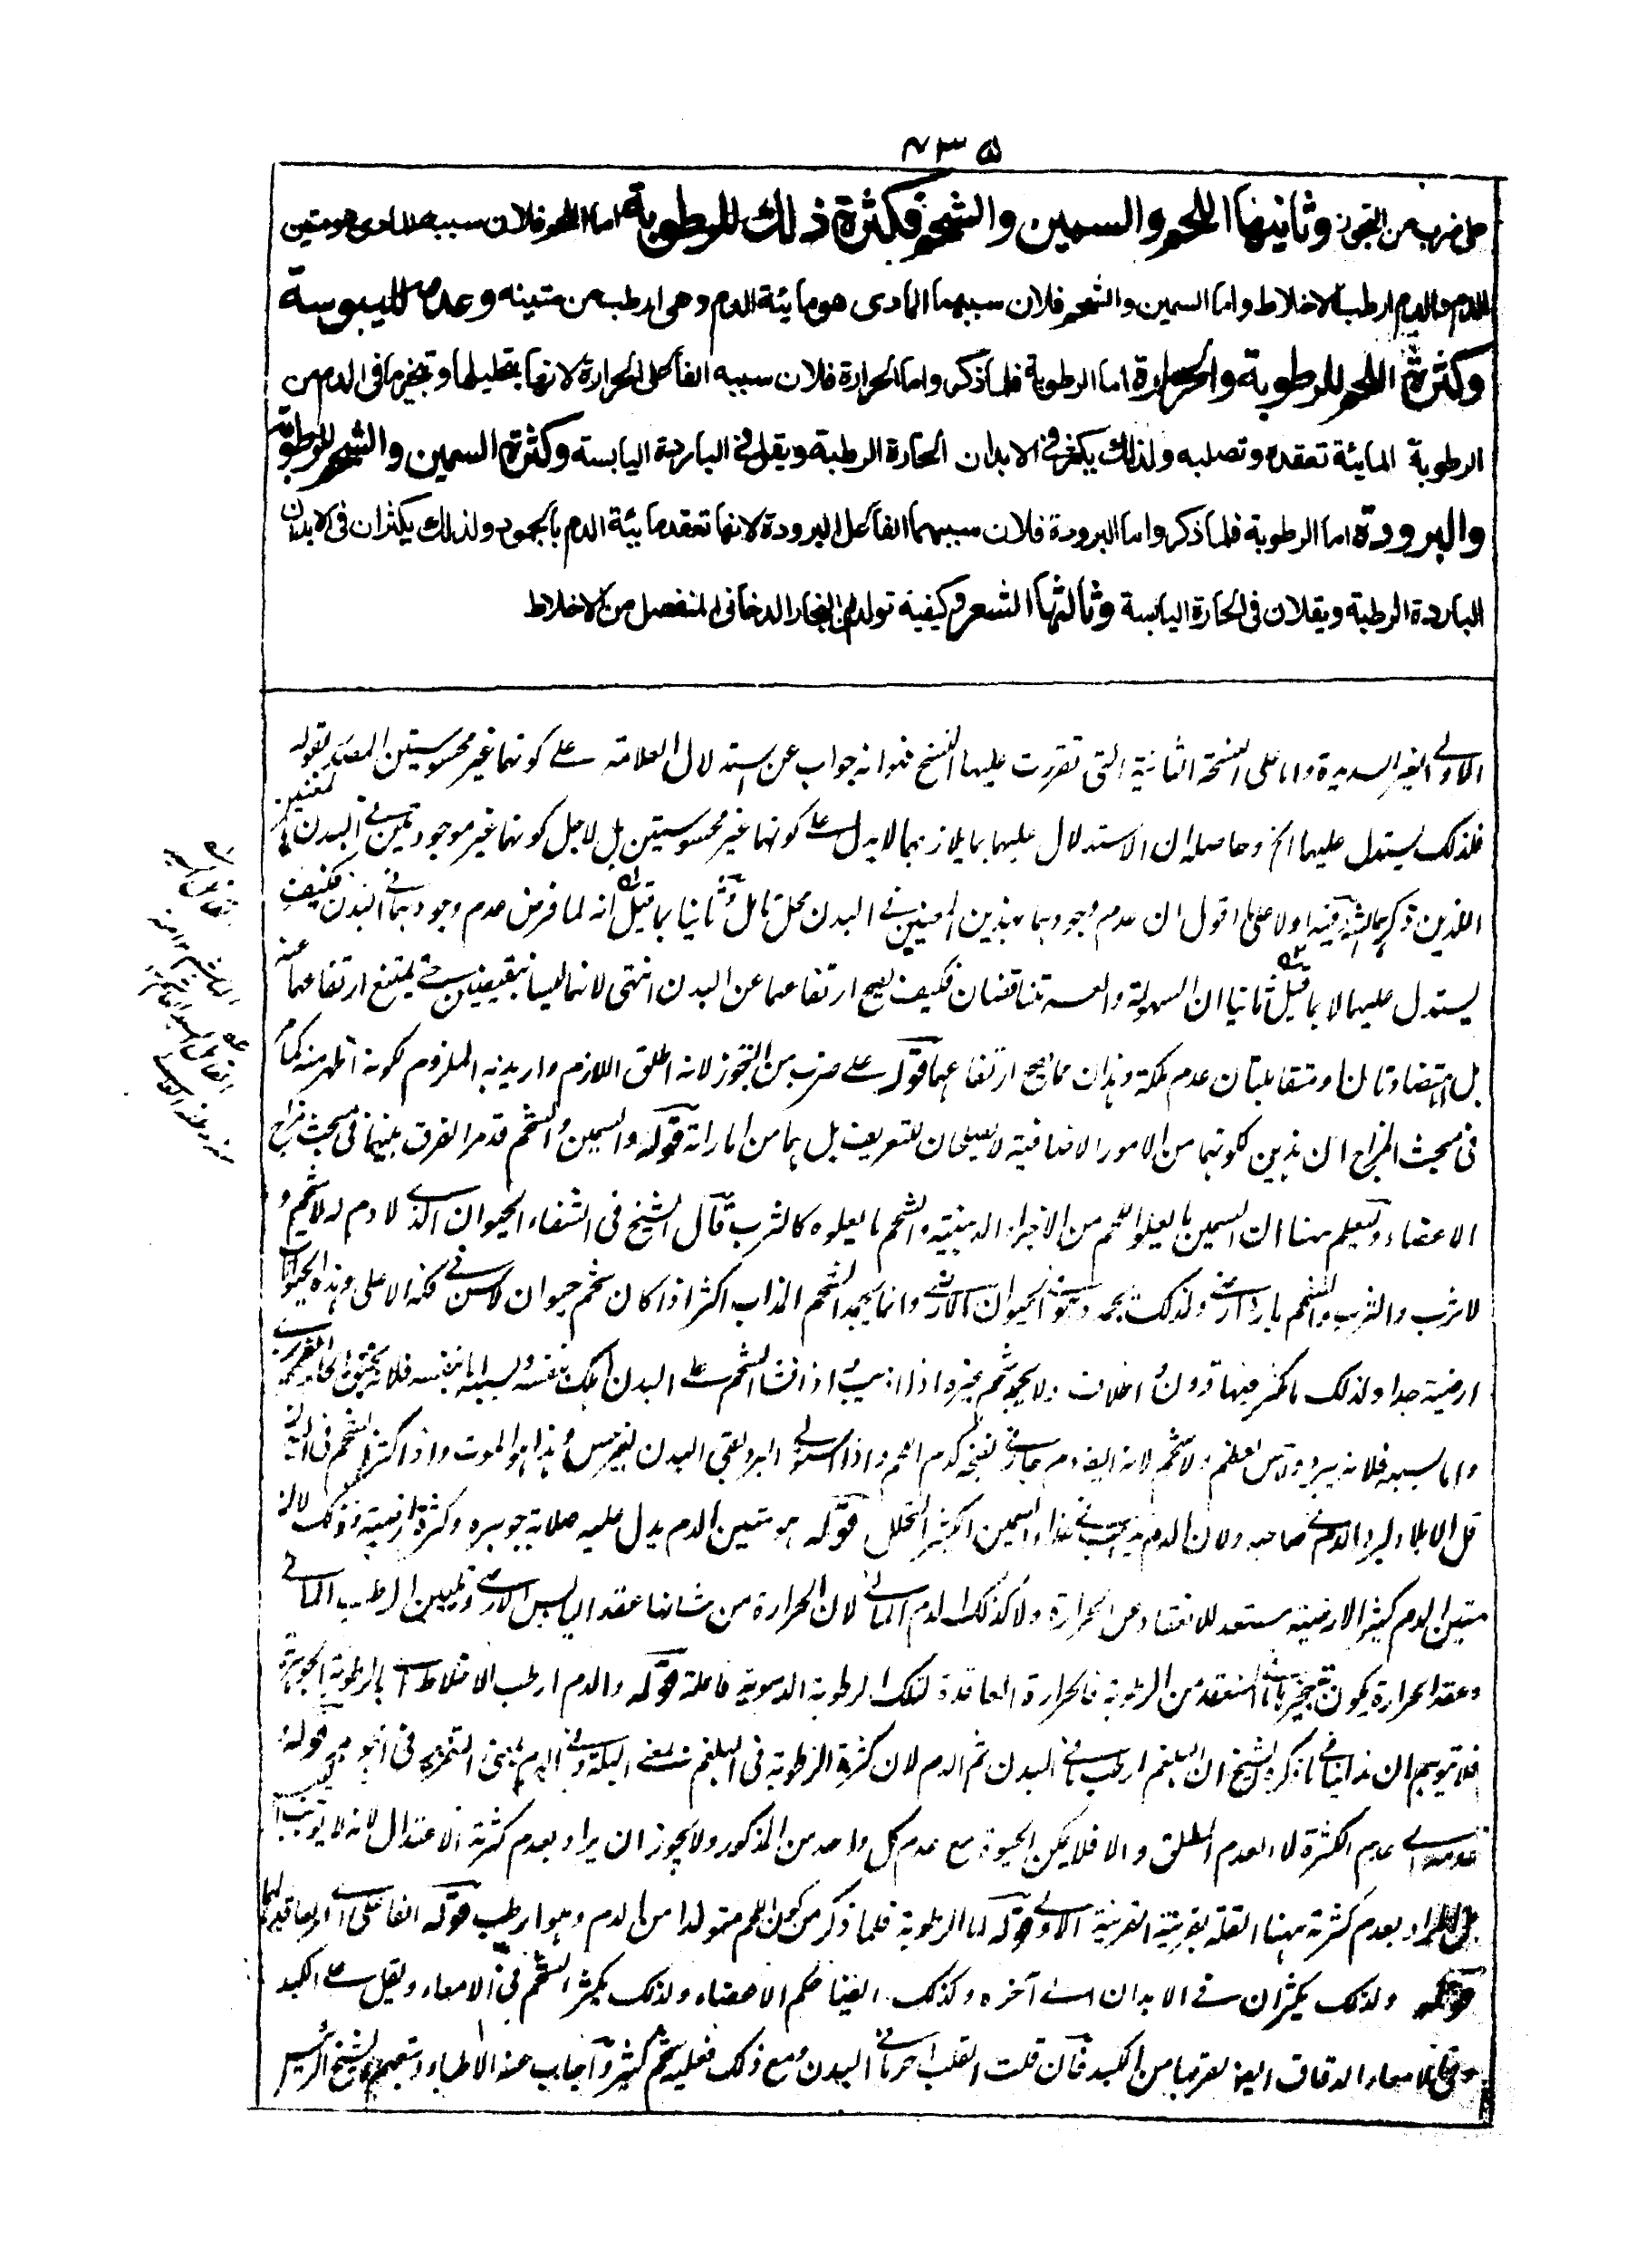 ٤٣٥
على ضرب من التجوز وثانيتها اللحم والسمين والشحم فكثرة ذلك للرطوبة اما اللحم فلان سببه المادى هو متين
الدم والدم ارطب الاخلاط واما السمين والشحم فلان سببهما المادى هو مائية الدم وهى ارطب من متينه وعدمه لليبوسة
وكثرة اللحم للرطوبة والحرارة اما الرطوبة فلما ذكر واما الحرارة فلان سببه الفاعل الحرارة لانها بتحليلها وتبخيرها فى الدم من
الرطوبة المائية تعقده وتصلبه ولذلك يكثر فى الابدان الحارة الرطبة ويقل فى الباردة اليابسة وكثرة السمين والشحم للرطوبة
والبرودة اما الرطوبة فلما ذكر واما البرودة فلان سببهما الفاعل البرودة لانها تعقد مائية الدم بالجمود ولذلك يكثران فى الابدان
الباردة الرطبة ويقلان فى الحارة اليابسة وثالثها الشعر وكيفية تولده من البخار الدخانى المنفصل من الاخلاط
الاولى الغير السديدة واما على النسخة الثانية التى تقررت عليها النسخ فهو انه جواب عن استدلال العلامة على كونهما غير محسوستين المصدر بقوله
فلذلك يستدل عليهما الخ وحاصله ان الاستدلال عليهما بما يلازمهما لا يدل على كونهما غير محسوستين بل لاجل كونهما غير موجودتين فى البدن بالمعنيين
اللذين ذكرهما الشارح فيه اولا على ما اقول ان عدم وجودهما بهذين المعنيين فى البدن محل تامل وثانيا بما قيل انه لما فرض عدم وجودهما فى البدن فكيف
يستدل عليهما لا بما قيل ثانيا ان السهولة والعسر متناقضان فكيف يصح ارتفاعهما عن البدن انتهى لانهما ليسا بنقيضين حتى يمتنع ارتفاعهما عنه
بل متضادتان او متقابلتان عدم ملكة وهذان مما يصح ارتفاعهما قوله على ضرب من التجوز لانه اطلق اللازم واريد به الملزوم لكونه اظهر منه كما مر
فى مبحث المزاج ان هذين لكونهما من الامور الاضافية لا يصلحان للتعريف بل هما من اماراته قوله والسمين والشحم قد مر الفرق بينهما فى مبحث مزاج
الاعضاء وليعلم ههنا ان السمين ما يعلو اللحم من الاجزاء الدهنية والشحم ما يعلوه كالثرب قال الشيخ فى الشفاء الحيوان الذى لا دم له لا شحم و
لا ثرب والثرب والشحم بارد ارضى ولذلك يجمد وانما يجمد الشحم المذاب اكثر اذا كان شحم حيوان لا سن فى فكه الاعلى وهذه الحيوانات
ارضية جدا ولذلك ما يكثر فيها قرون واظلاف ولا يجمد شحم غيره اذا اذيب واذا فشا الشحم على البدن اهلك بنفسه وبسببه اما بنفسه فلانه يخنق الحار الغريزى
واما بسببه فلانه يبرد ولا حس لعظم ولا شحم لانه ايضا دم نضجه كدم اللحم واذا استولى البرد بقى البدن بغير حس وهذا هو الموت واذا كثر الشحم فى
قل الايلاد لبرد الدم فى صاحبه ولان الدم يذهب فى غذاء السمين الكثير التحلل قوله هو متين الدم يدل عليه صلابة جوهره وكثرة ارضيته وذلك لان
متين الدم كثير الارضية مستعد للانعقاد عن الحرارة ولا كذلك الدم المائى لان الحرارة من شانها عقد اليابس الارضى وتليين الرطب المائى
وعقد الحرارة يكون بتبخيرها ما المنعقد من الرطوبة فالحرارة العاقدة لتلك الرطوبة الدموية فاعلة قوله والدم ارطب الاخلاط اى بالرطوبة الجوهرية
فلا يتوهم ان هذا ينافى ما ذكره الشيخ ان البلغم ارطب ما فى البدن ثم الدم لان كثرة الرطوبة فى البلغم بمعنى البلة وفى الدم بمعنى التقرر فى الجوهر قوله
عدمه اى عدم الكثرة لا العدم المطلق والا فلا يمكن الحيوة مع عدم كل واحد من المذكور ولا يجوز ان يراد بعدم كثرته الاعتدال لانه لا يوجب
بل المراد بعدم كثرته ههنا القلة بقرينة القرينة الاولى قوله اما الرطوبة فلما ذكر من كون اللحم متولدا من الدم وهو ارطب قوله الفاعلى اى العاقد لهما
قوله ولذلك يكثران فى الابدان الى آخره وكذلك ايضا حكم الاعضاء ولذلك يكثر الشحم فى الامعاء ويقل على الكبد
وفى الامعاء الدقاق ايضا لقربها من الكبد فان قلت القلب احر ما فى البدن ومع ذلك فعليه شحم كثير واجاب عنه الاطباء وتبعهم الشيخ الرئيس